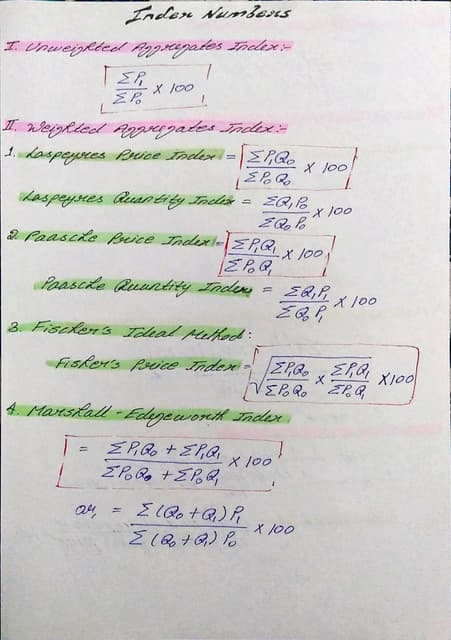 Index Numbers
I. Unweighted Aggregates Index:-
ΣP₁ / ΣP₀ X 100
II. Weighted Aggregates Index:-
1. Laspeyres Price Index = ΣP₁Q₀ / ΣP₀Q₀ X 100
Laspeyres Quantity Index = ΣQ₁P₀ / ΣQ₀P₀ X 100
2. Paasche Price Index = ΣP₁Q₁ / ΣP₀Q₁ X 100
Paasche Quantity Index = ΣQ₁P₁ / ΣQ₀P₁ X 100
3. Fischer's Ideal Method:
Fisher's Price Index = √(ΣP₁Q₀ / ΣP₀Q₀ X ΣP₁Q₁ / ΣP₀Q₁) X100
4. Marshall-Edgeworth Index
= ΣP₁Q₀ + ΣP₁Q₁ / ΣP₀Q₀ + ΣP₀Q₁ X 100
or, = Σ(Q₀+Q₁)P₁ / Σ(Q₀+Q₁)P₀ X 100